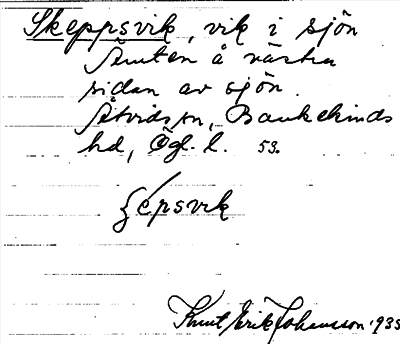 Skeppsvik, vik i sjön
Åmten å västra
sidan av sjön.
Åtvids sn, Bankekinds
hd, Ögl. l. 53.
ʃépsvik
Knut Erik Johansson 1935